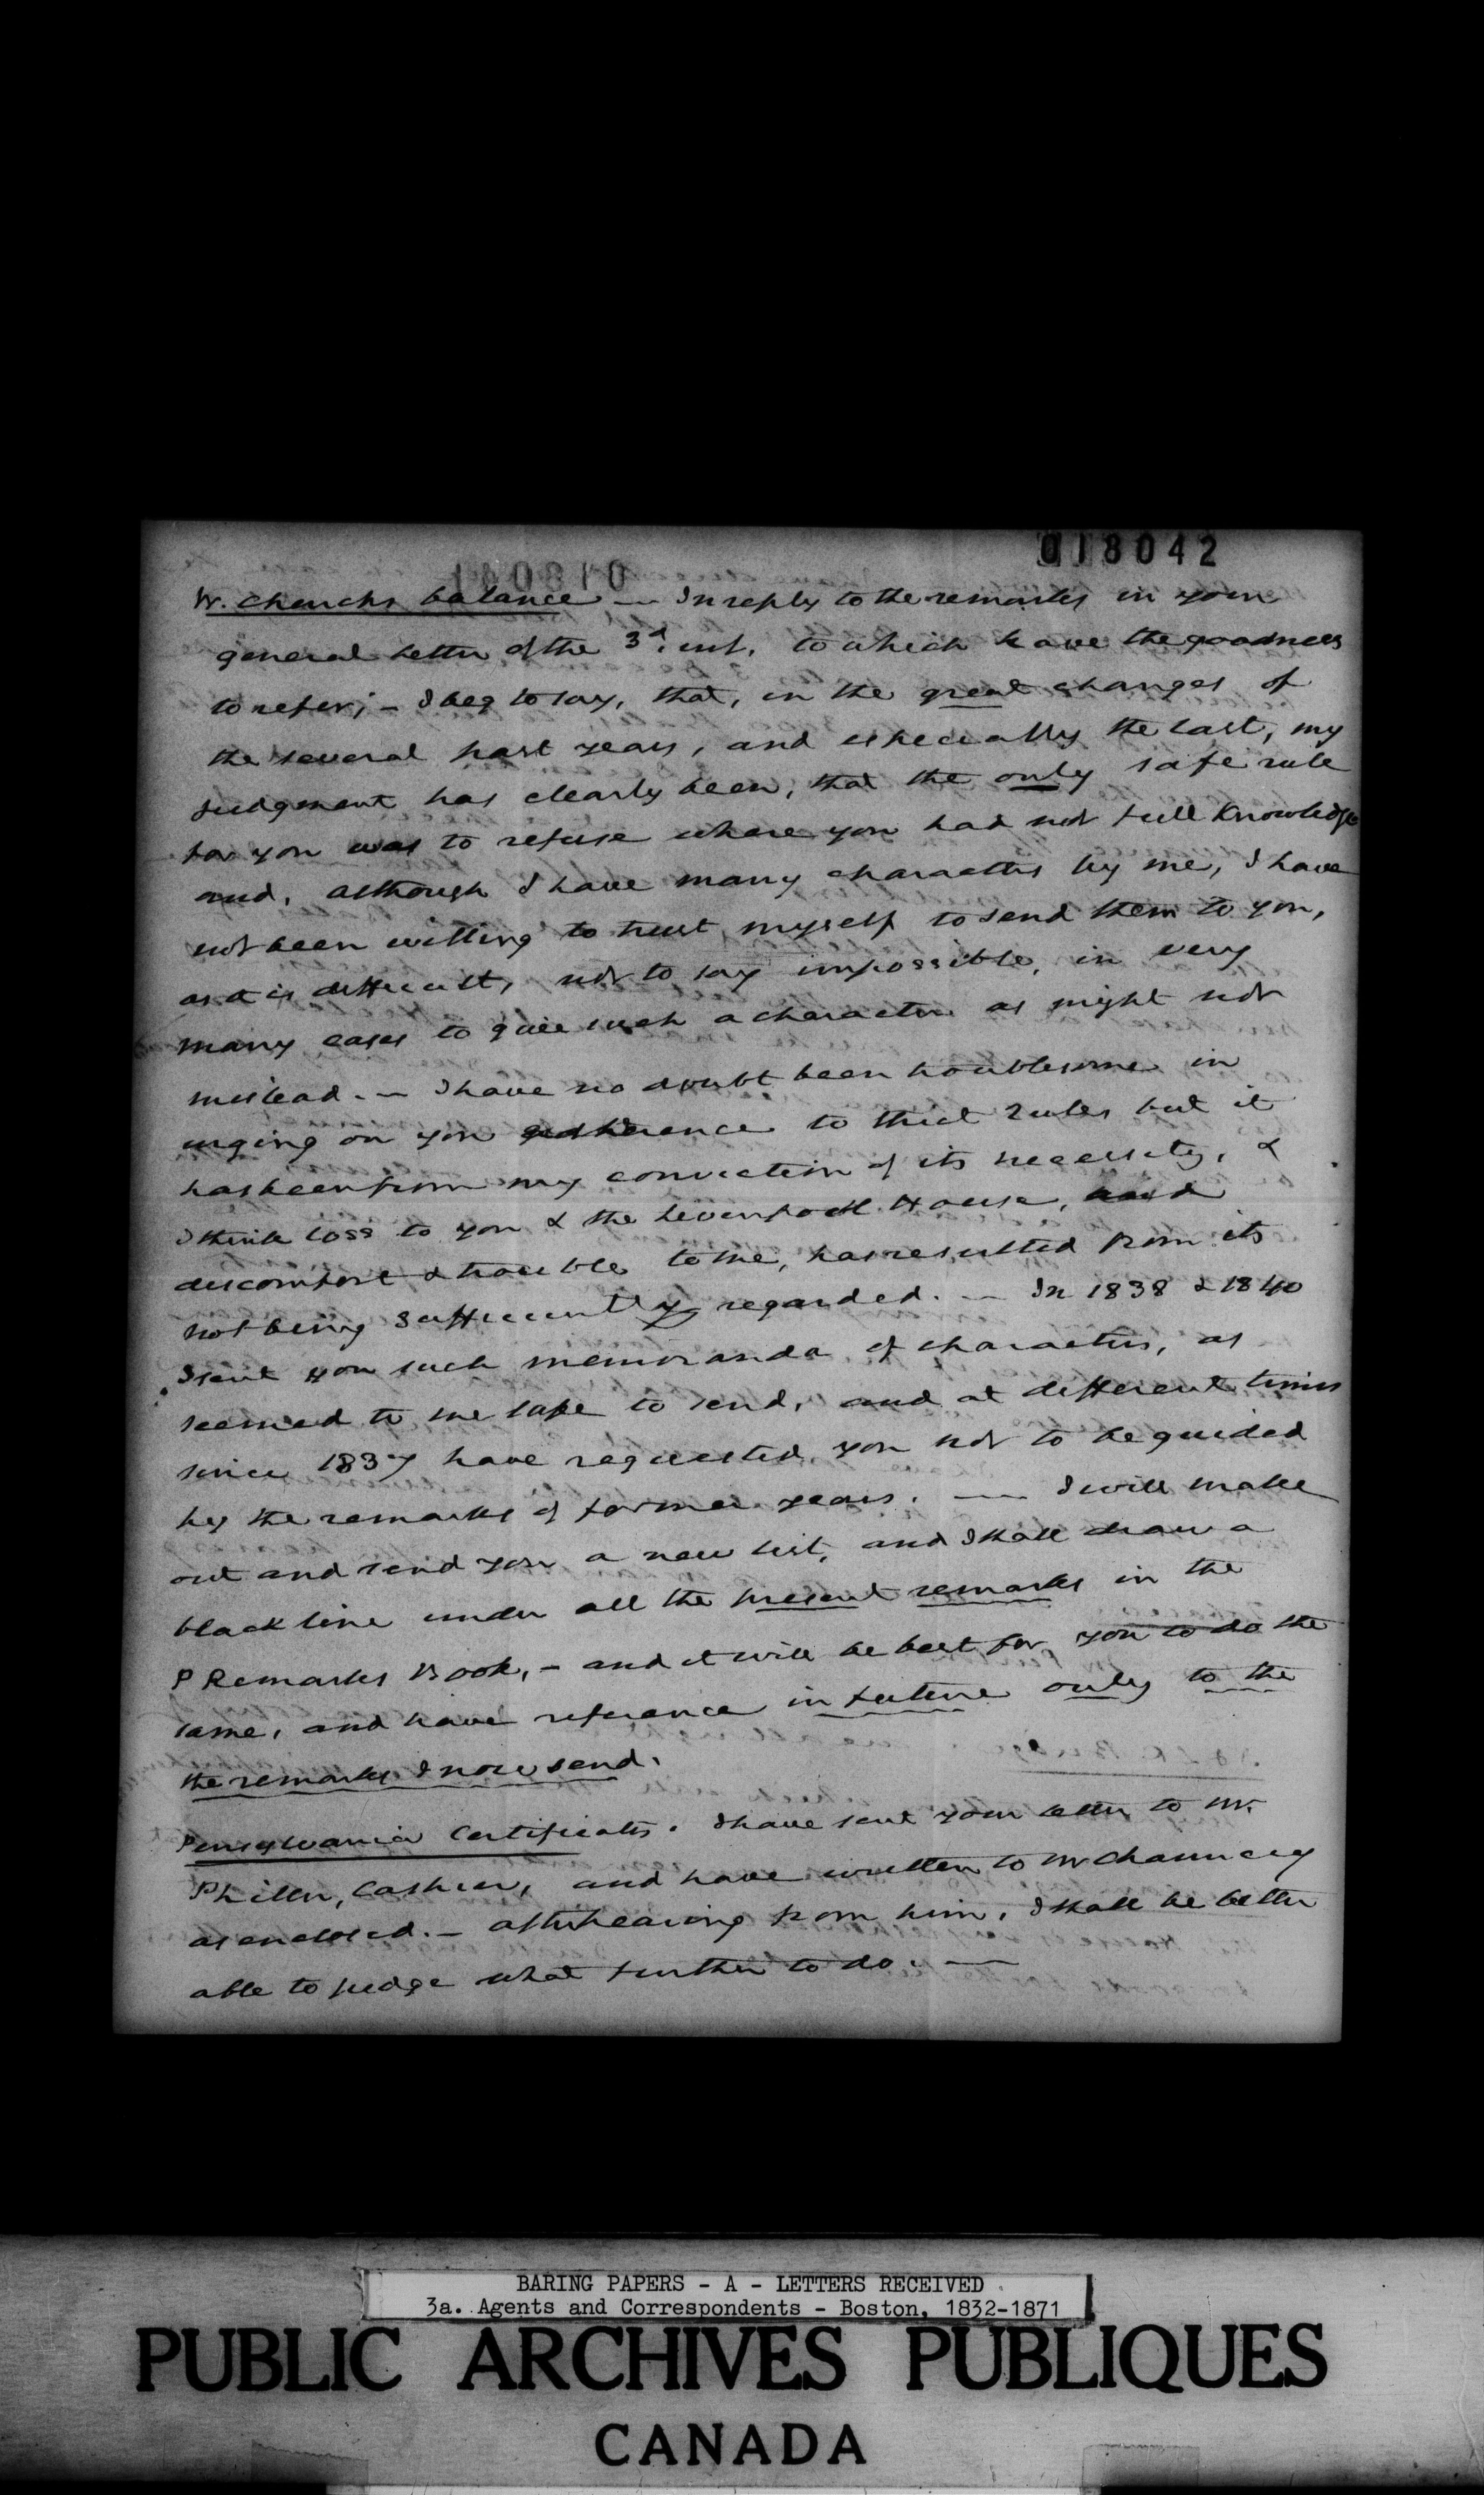 018042
W. Church's balance — In reply to the remarks in your
general letter of the 3d. inst. to which have the goodness
to refer; — I beg to say, that, in the great changes of
the several past years, and especially the last, my
judgment has clearly been, that the only safe rule
for you was to refuse where you had not full Knowledge
and, although I have many characters by me, I have
not been willing to trust myself to send them to you,
as it is difficult, not to say impossible, in very
many cases to give such a character as might not
mislead. — I have no doubt been troublesome in
urging on you adherence to strict rules but it
has been from my conviction of its necessity, &
I think loss to you & the Liverpool House, and
discomfort & trouble to me, has resulted from its
not being sufficiently regarded. — In 1838 & 1840
I sent you such memoranda of characters, as
seemed to me safe to send, and at different times
since 1837 have requested you not to be guided
by the remarks of former years. — I will make
out and send you a new list, and I shall draw a
black line under all the present remarks in the
P Remarks Book, — and it will be best for you to do the
same, and have reference in future only to the
the remarks I now send.
Pensylvania Certificates. I have sent your letter to Mr.
Philler, Cashier, and have written to Mr Chauncey
as enclosed. — after hearing from him, I shall be better
able to judge what further to do. —
BARING PAPERS - A - LETTERS RECEIVED
3a. Agents and Correspondents - Boston, 1832-1871
PUBLIC ARCHIVES PUBLIQUES
CANADA